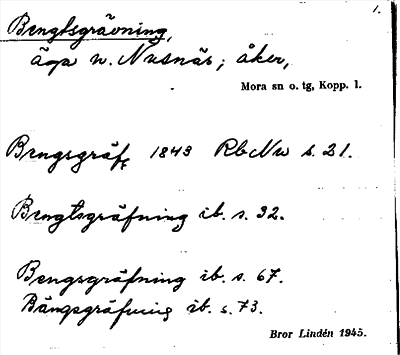 1.
Bengtsgrävning,
äga n. Nusnäs; åker,
Mora sn o. tg, Kopp. l.
Bengsgräf, 1843 RbNu s. 21.
Bengtsgräfning ib. s. 32.
Bengsgräfning ib. s. 67.
Bängsgräfning ib. s. 73.
Bror Lindén 1945.